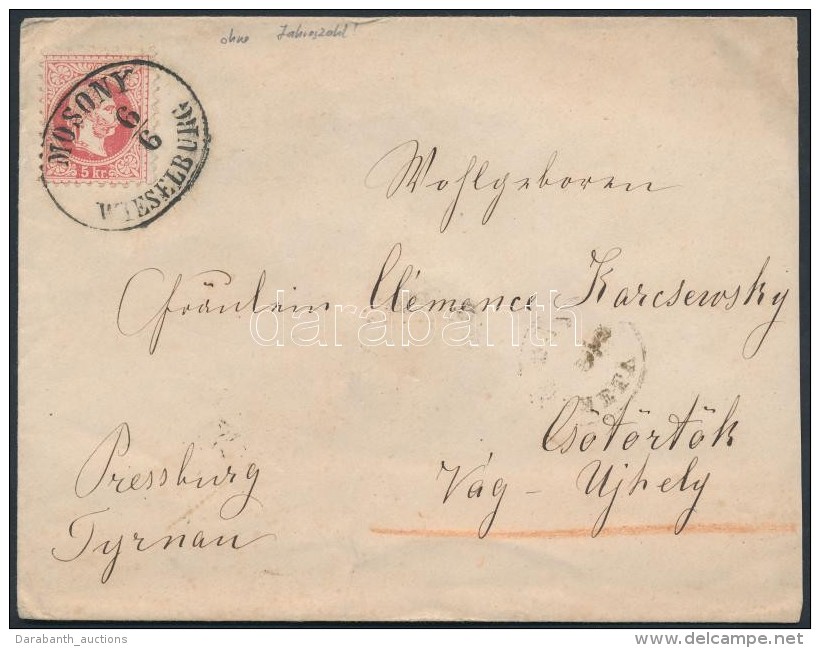 ohne Jahreszahl!
MOSONY
6
6
WIESELBURG
5 kr.
Wohlgeboren
Fräulein Clémence Karcsewsky
darabanth
Csötörtök
Pressburg
Vág - Ujhely
Tyrnau
Darabanth_auctions
www.delcampe.net